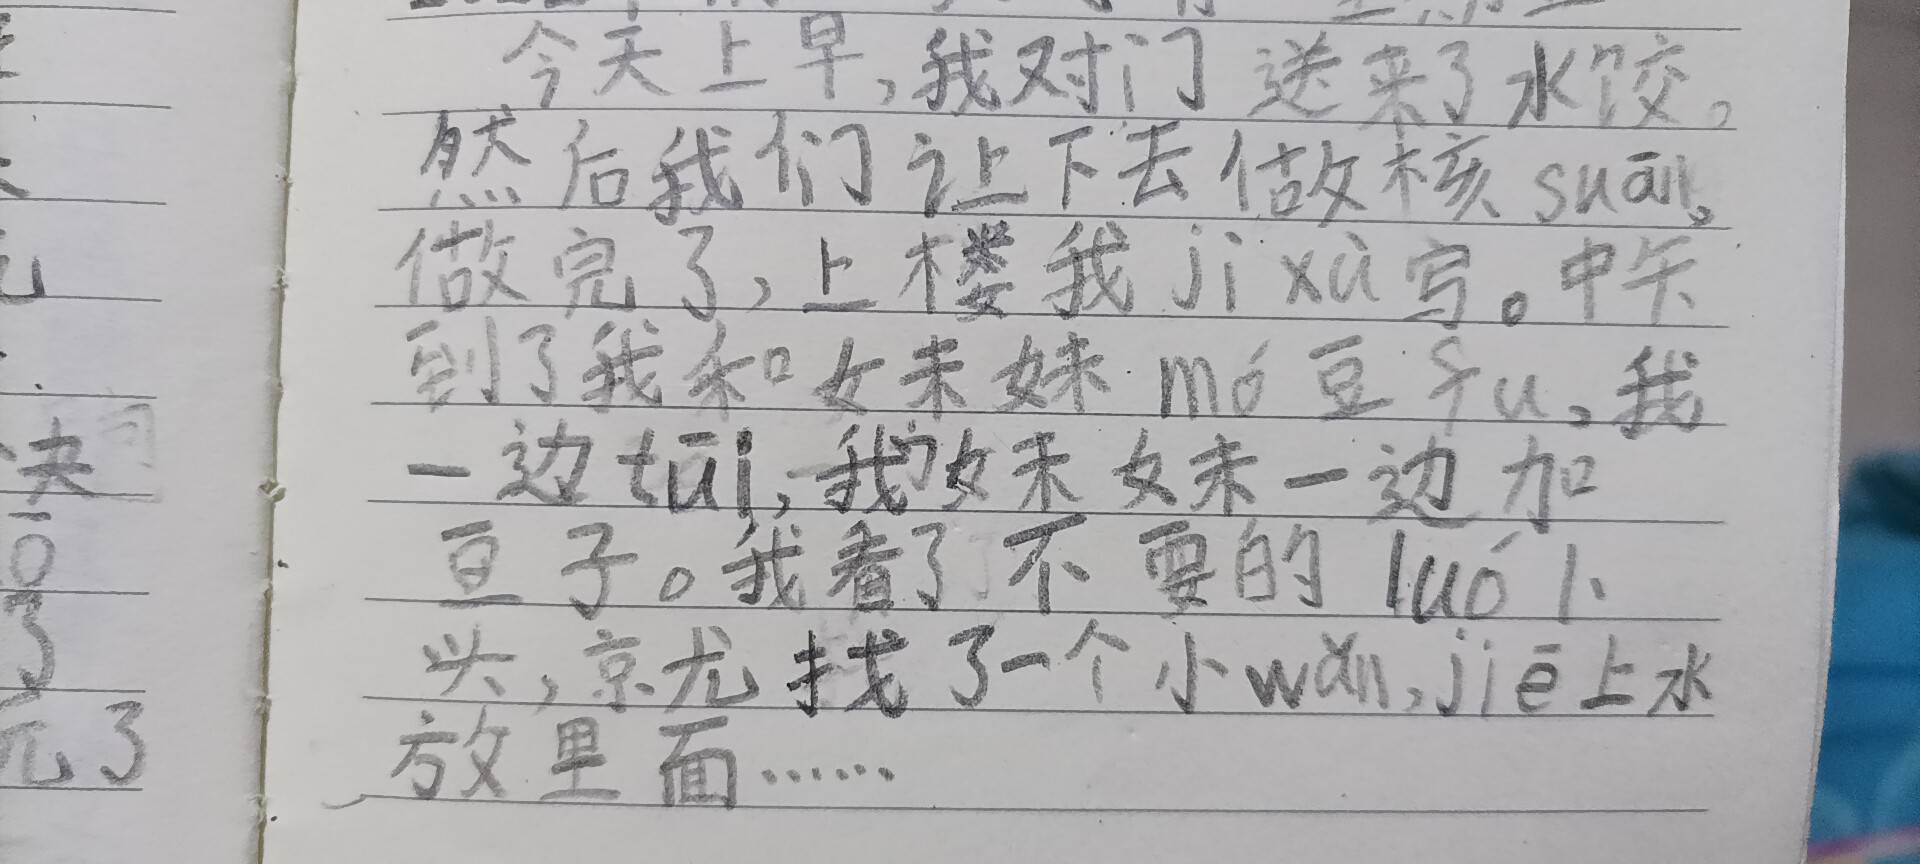 今天上早,我对门送来了水饺。
然后我们让下去做核suān,
做完了,上楼我ji xù写。中午
到了我和妹妹mó豆fu,我
一边tūi,我妹妹一边加
豆子。我看了不要的luó卜
头,就找了一个小wǎn,jiē上水
放里面……
决
了
完了